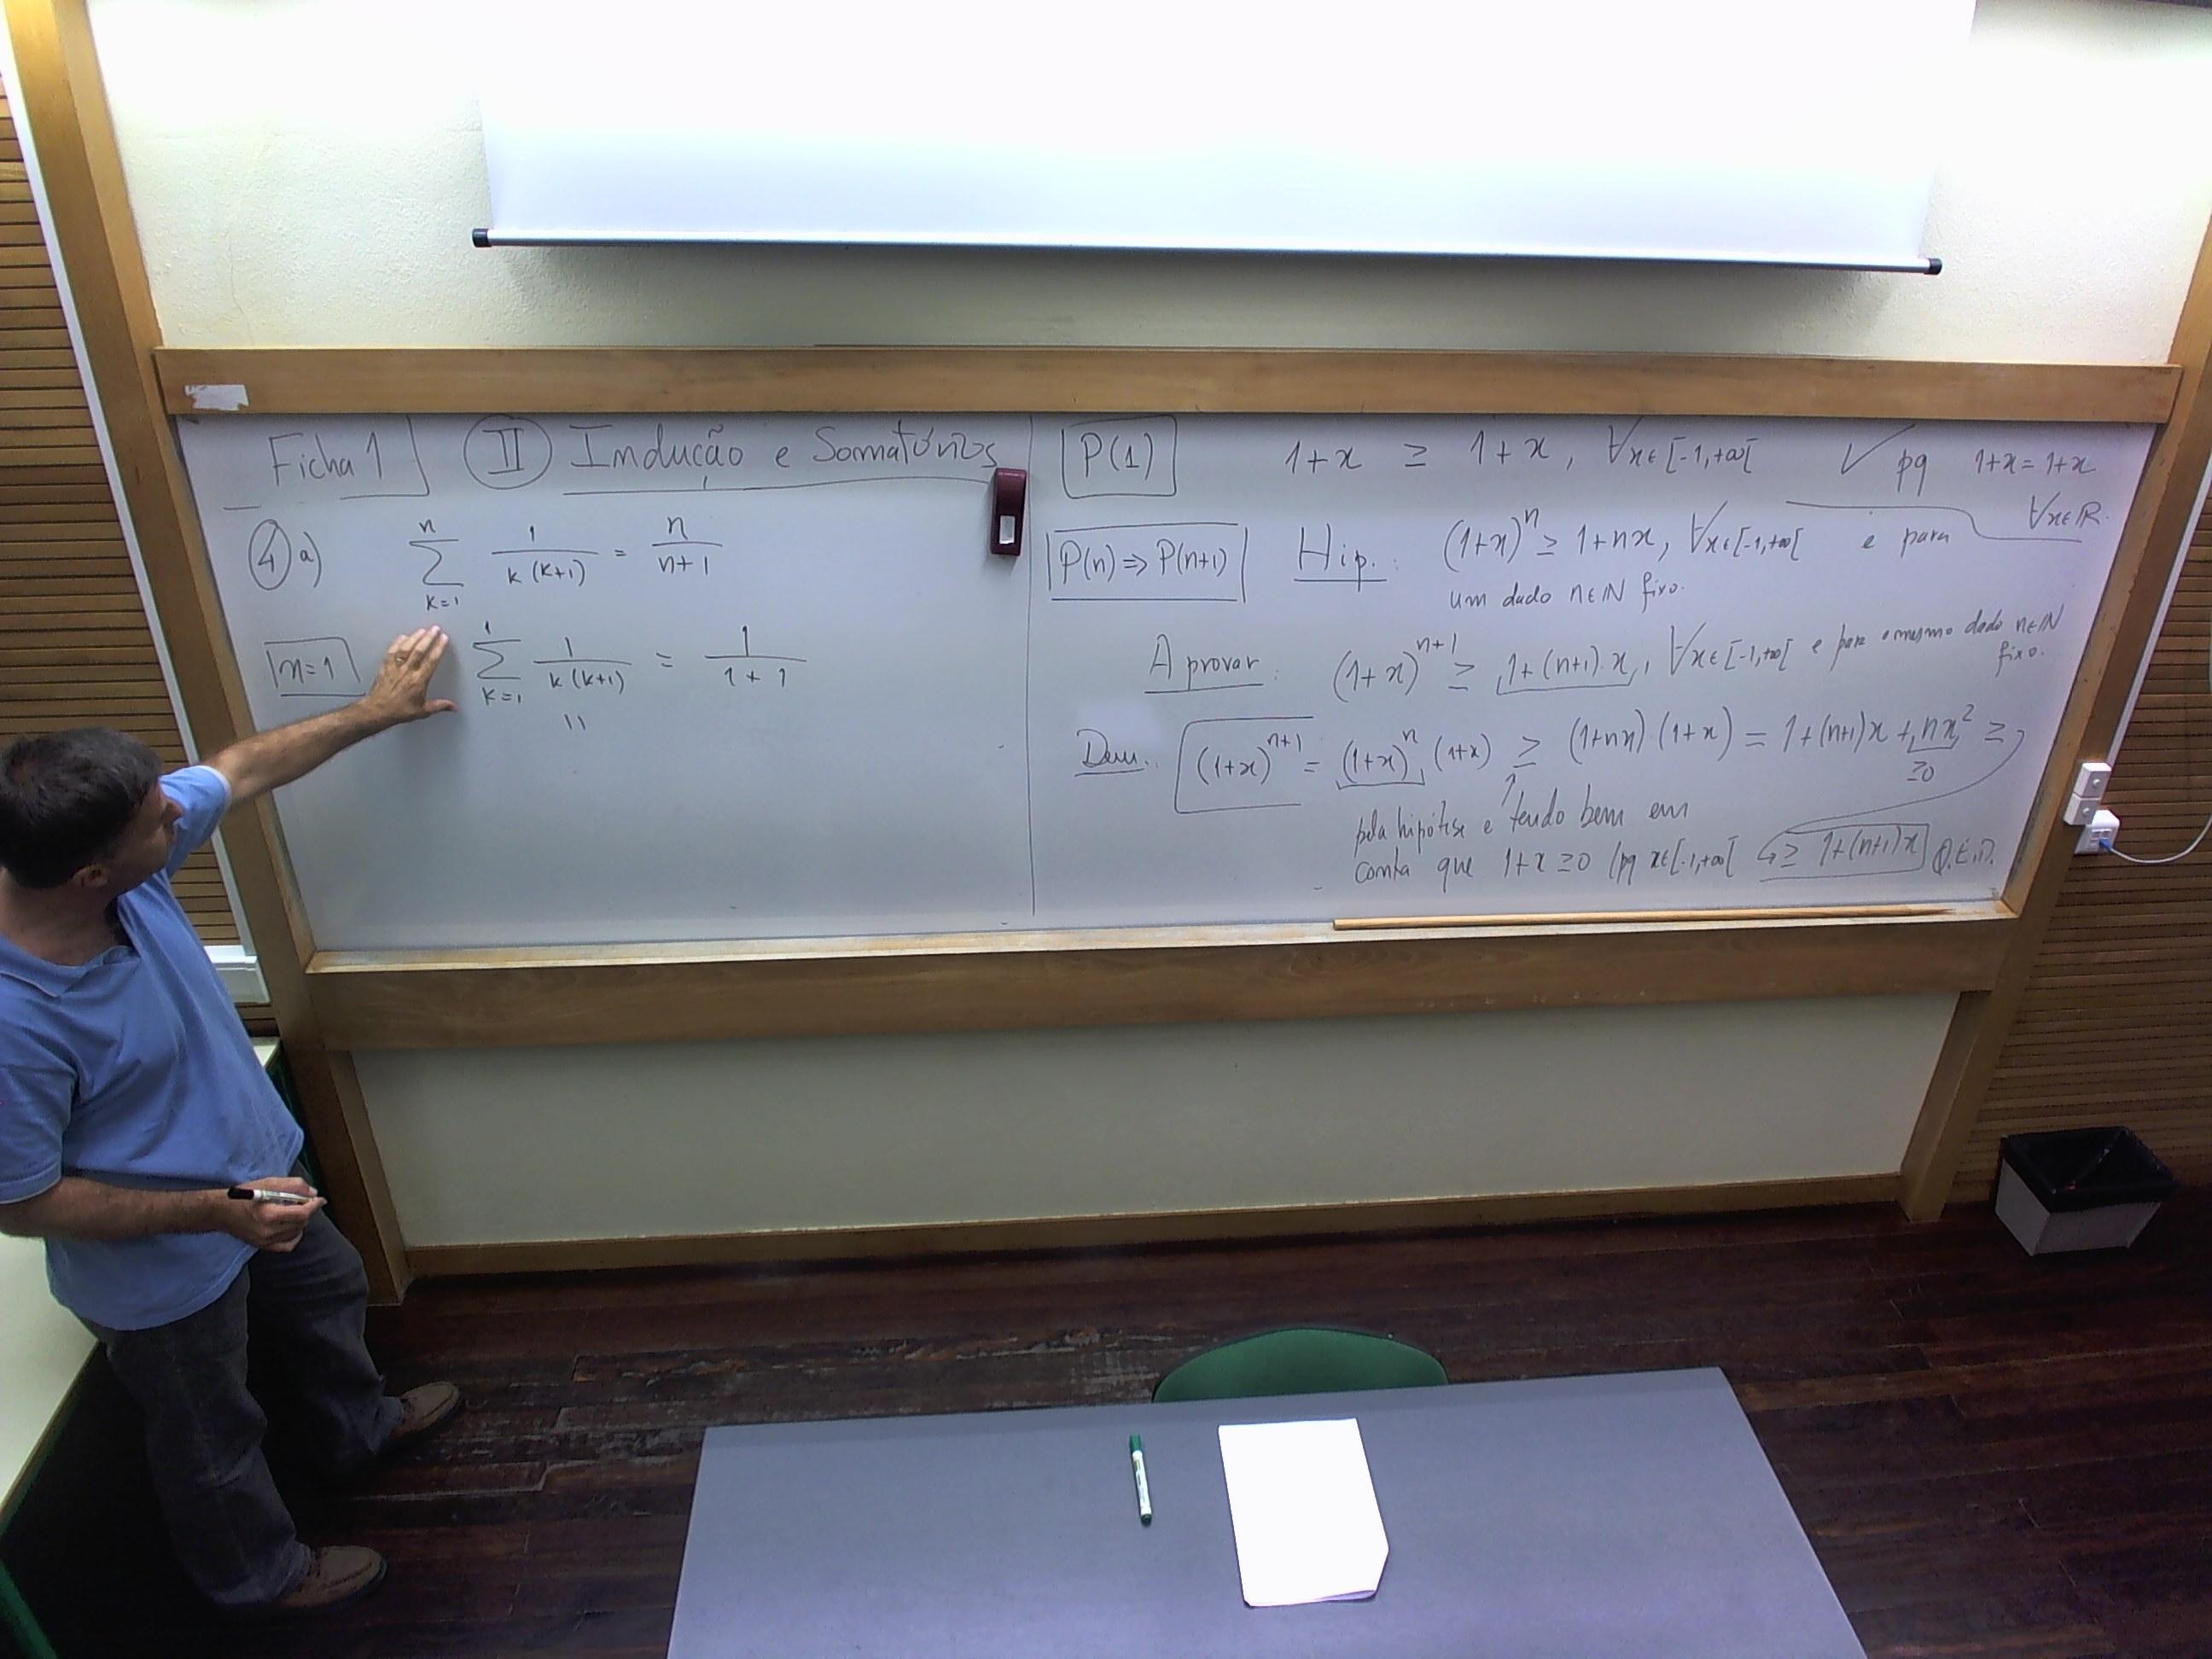 Ficha 1 II Indução e Somatórios
4 a) ∑_{k=1}^{n} 1/(k(k+1)) = n/(n+1)
n=1 ∑_{k=1}^{1} 1/(k(k+1)) = 1/(1+1)
=
P(1) 1+x ≥ 1+x, ∀x∈[-1,+∞[ ✓ pq 1+x=1+x
∀x∈ℝ.
P(n) ⇒ P(n+1) Hip.: (1+x)^n ≥ 1+nx, ∀x∈[-1,+∞[ e para
um dado n∈ℕ fixo.
A provar: (1+x)^{n+1} ≥ 1+(n+1).x, ∀x∈[-1,+∞[ e para o mesmo dado n∈ℕ
fixo.
Dem.: (1+x)^{n+1} = (1+x)^n (1+x) ≥ (1+nx).(1+x) = 1+(n+1)x + nx² ≥
≥0
↑
pela hipótese e tendo bem em
conta que 1+x ≥0 (pq x∈[-1,+∞[ ↪ ≥ 1+(n+1)x Q.E.D.